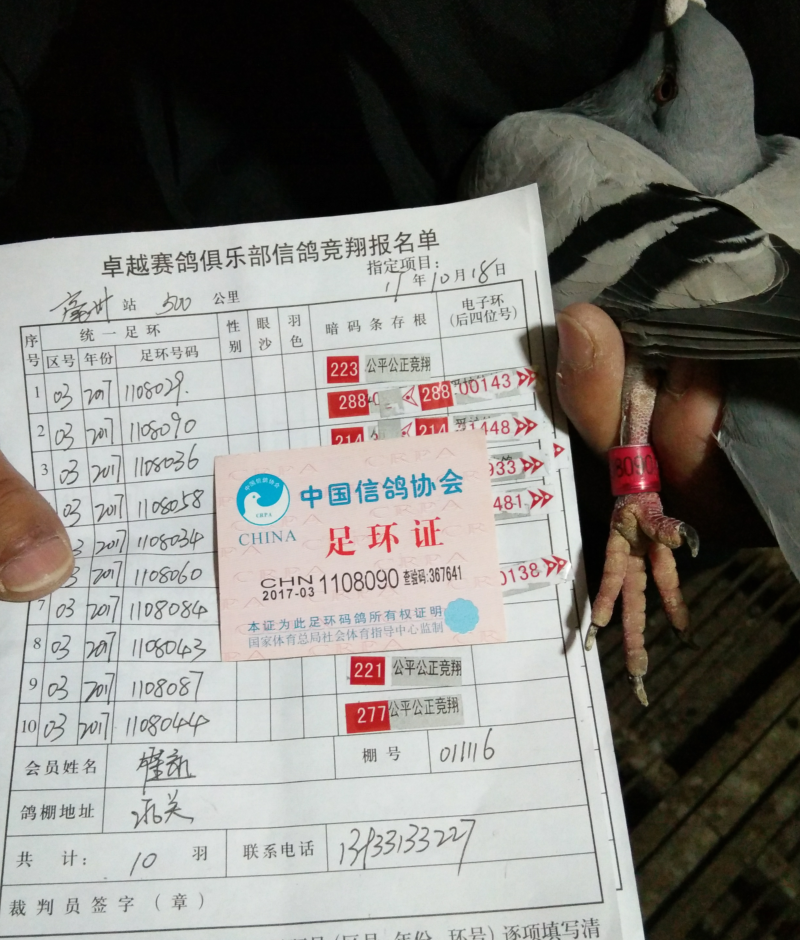 卓越赛鸽俱乐部信鸽竞翔报名单
指定项目：
站 500 公里 17年10月18日
序号 统一足环 性别 眼沙 羽色 暗码条存根 电子环（后四位号）
区号 年份 足环号码
223 公平公正竞翔
1 03 2017 1108029. 288 288 00143
2 03 2017 1108090 214 214 1448
3 03 2017 1108036 933
03 2017 1108058 481
03 2017 1108034
03 2017 1108060 0138
7 03 2017 1108084
8 03 2017 1108043
9 03 2017 1108087 221 公平公正竞翔
10 03 2017 1108044 277 公平公正竞翔
中国信鸽协会
CRPA
CHINA 足环证
CHN 2017-03 1108090 查验码:367641
本证为此足环码鸽所有权证明
国家体育总局社会体育指导中心监制
会员姓名 棚号 011116
鸽棚地址
共计： 10 羽 联系电话 13933133227
裁判员签字（章）
（区号、年份、环号）逐项填写清
8090